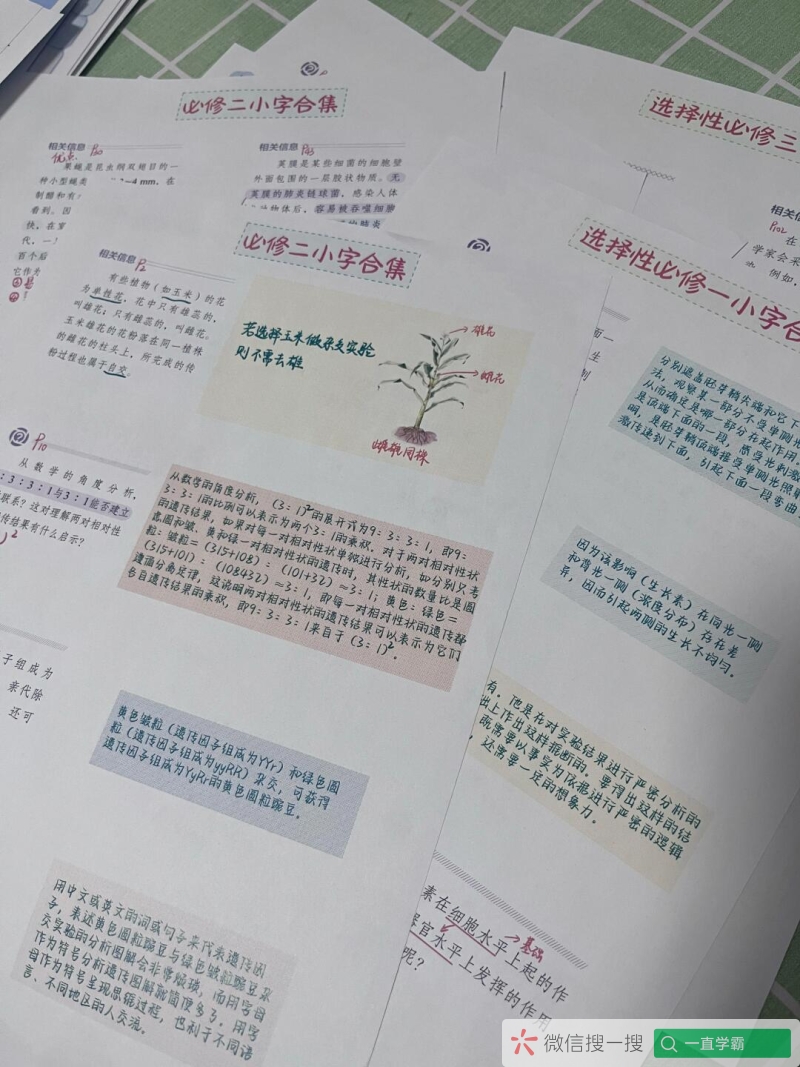 必修二小字合集
相关信息
P20
优点
果蝇是昆虫纲双翅目的一
种小型蝇类
3~4 mm，在
制醋和有
看到。因
快，在室
代，一
百个后
它作为
相关信息
P43
荚膜是某些细菌的细胞壁
外面包围的一层胶状物质。无
荚膜的肺炎链球菌，感染人体
动物体后，容易被吞噬细胞
选择性必修三
相关信息
P102
在
学家会采
例如，
必修二小字合集
相关信息
P2
有些植物（如玉米）的花
为单性花，花中只有雄蕊的，
叫雄花；只有雌蕊的，叫雌花。
玉米雄花的花粉落在同一植株
的雌花的柱头上，所完成的传
粉过程也属于自交。
若选择玉米做杂交实验
则不需去雄
雄花
雌花
雌雄同株
P10
从数学的角度分析，
:3:3:1与3:1能否建立
联系？这对理解两对相对性
传结果有什么启示？
从数学的角度分析，(3:1)²的展开式为9:3:3:1，即9:
3:3:1的比例可以表示为两个3:1的乘积。对于两对相对性状
的遗传结果，如果对每一对相对性状单独进行分析，如分别只考
虑圆和皱、黄和绿一对相对性状的遗传时，其性状的数量比是圆
粒：皱粒=(315+108):(101+32)≈3:1；黄色：绿色=
(315+101):(108+32)≈3:1，即每一对相对性状的遗传都
遵循分离定律，这说明两对相对性状的遗传结果可以表示为它们
各自遗传结果的乘积，即9:3:3:1来自于(3:1)²。
子组成为
亲代除
还可
黄色皱粒（遗传因子组成为YYrr）和绿色圆
粒（遗传因子组成为yyRR）杂交，可获得
遗传因子组成为YyRr的黄色圆粒豌豆。
用中文或英文的词或句子来代表遗传因
子，表述黄色圆粒豌豆与绿色皱粒豌豆杂
交实验的分析图解会非常烦琐，而用字母
作为符号分析遗传图解就简便多了。用字
母作为符号呈现思维过程，也利于不同语
言、不同地区的人交流。
选择性必修一小字合
面一
生
制
分别遮盖胚芽鞘尖端和它下
法，观察某一部分不受单侧光
从而确定是哪一部分在起作用
是顶端下面的一段，感受光刺激
明，是胚芽鞘顶端接受单侧光照射
激传递到下面，引起下面一段弯曲
因为该影响（生长素）在向光一侧
和背光一侧（浓度分布）存在差
异，因而引起两侧的生长不均匀。
有。他是在对实验结果进行严密分析的
出上作出这样推断的。要得出这样的结
既需要以事实为依据进行严密的逻辑
，还需要一定的想象力。
素在细胞水平上起的作
器官水平上发挥的作用
呢？
基础
微信搜一搜
一直学霸